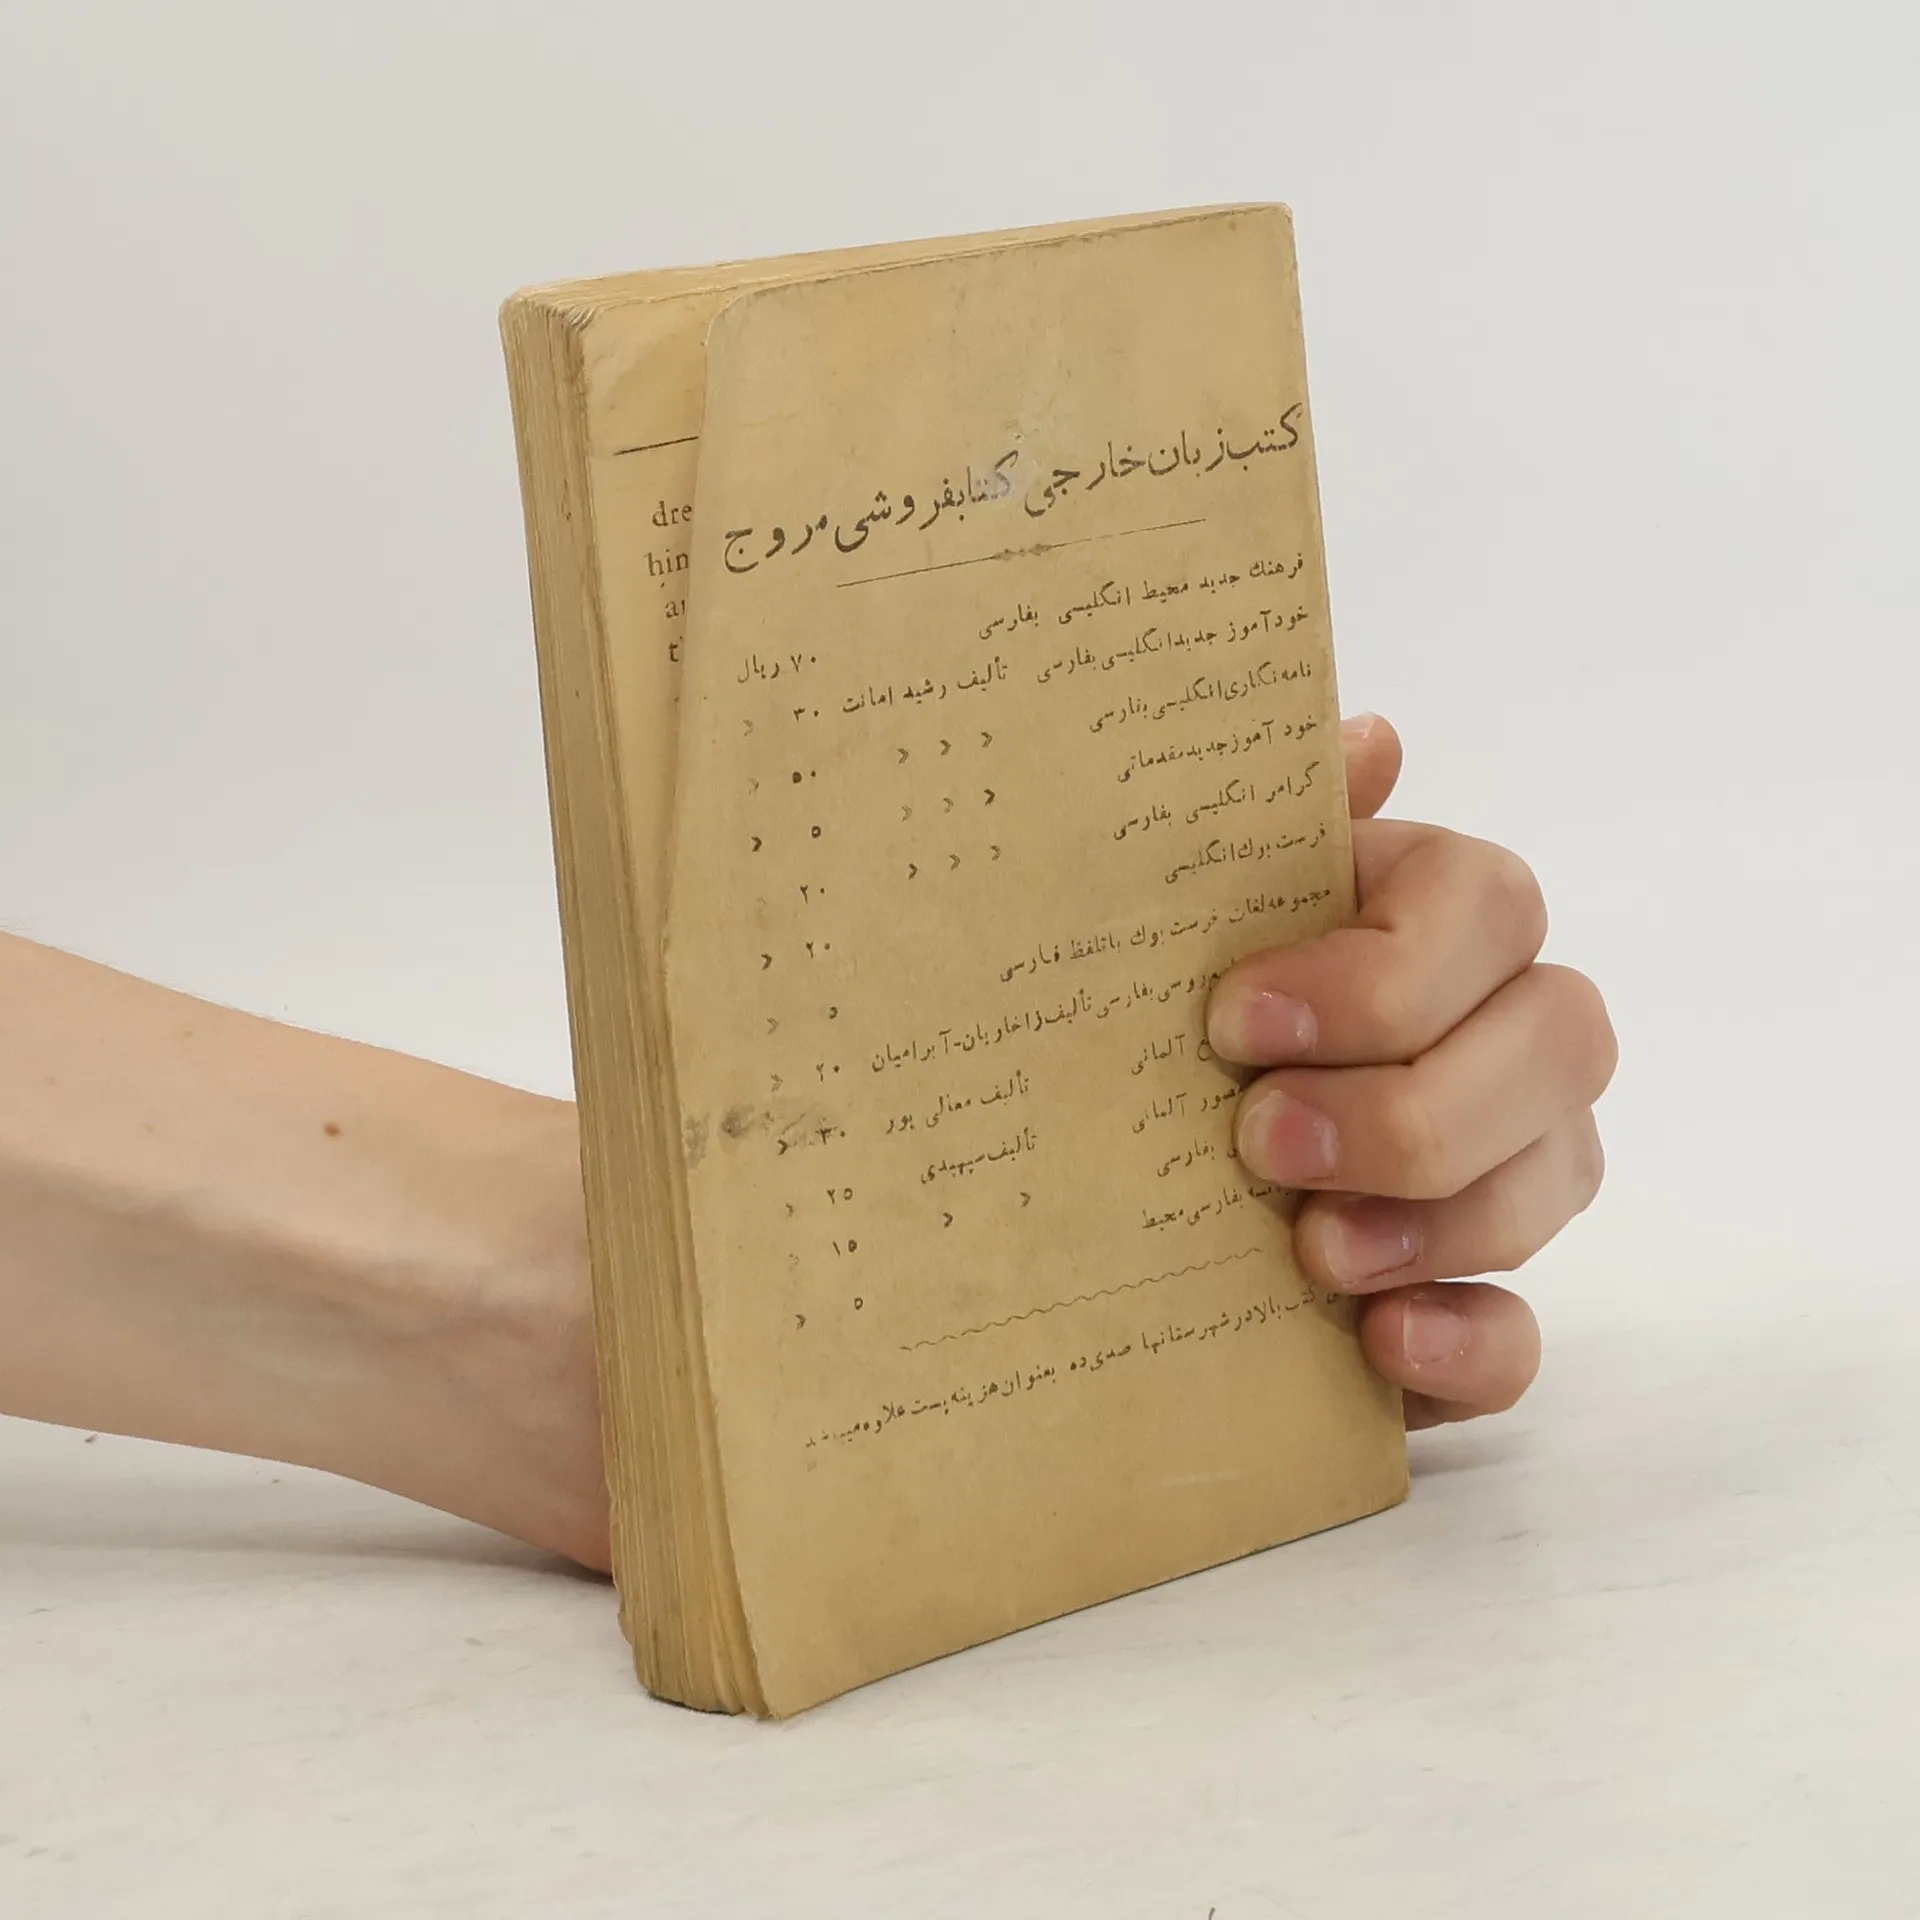 کتب زبان خارجی کتابفروشی مروج
فرهنك جديد محيط انگليسی بفارسی ۷۰ ريال
خودآموز جديد انگليسی بفارسی تأليف رشيد امانت ۳۰ »
نامه نگاری انگليسی بفارسی » » » ۵۰ »
خود آموز جديد مقدماتی » » » ۵ »
گرامر انگليسی بفارسی » » » ۲۰ »
فرست بوك انگليسی ۲۰ »
مجموعه لغات فرست بوك باتلفظ فارسی ۵ »
روسی بفارسی تأليف زاخاريان-آبراميان ۲۰ »
آلمانی تأليف معالی پور ۳۰ »
مصور آلمانی تأليف سپهبدی ۲۵ »
بفارسی » » ۱۵ »
بفارسی محيط ۵ »
كتب بالا در شهرستانها صدی ده بعنوان هزينه پست علاوه ميباشد
dre
hin